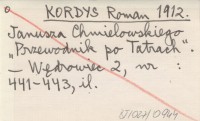 KORDYS Roman 1912.
Janusza Chmielowskiego
„Przewodnik po Tatrach".
— Wędrowiec 2, nr :
441-443, il.